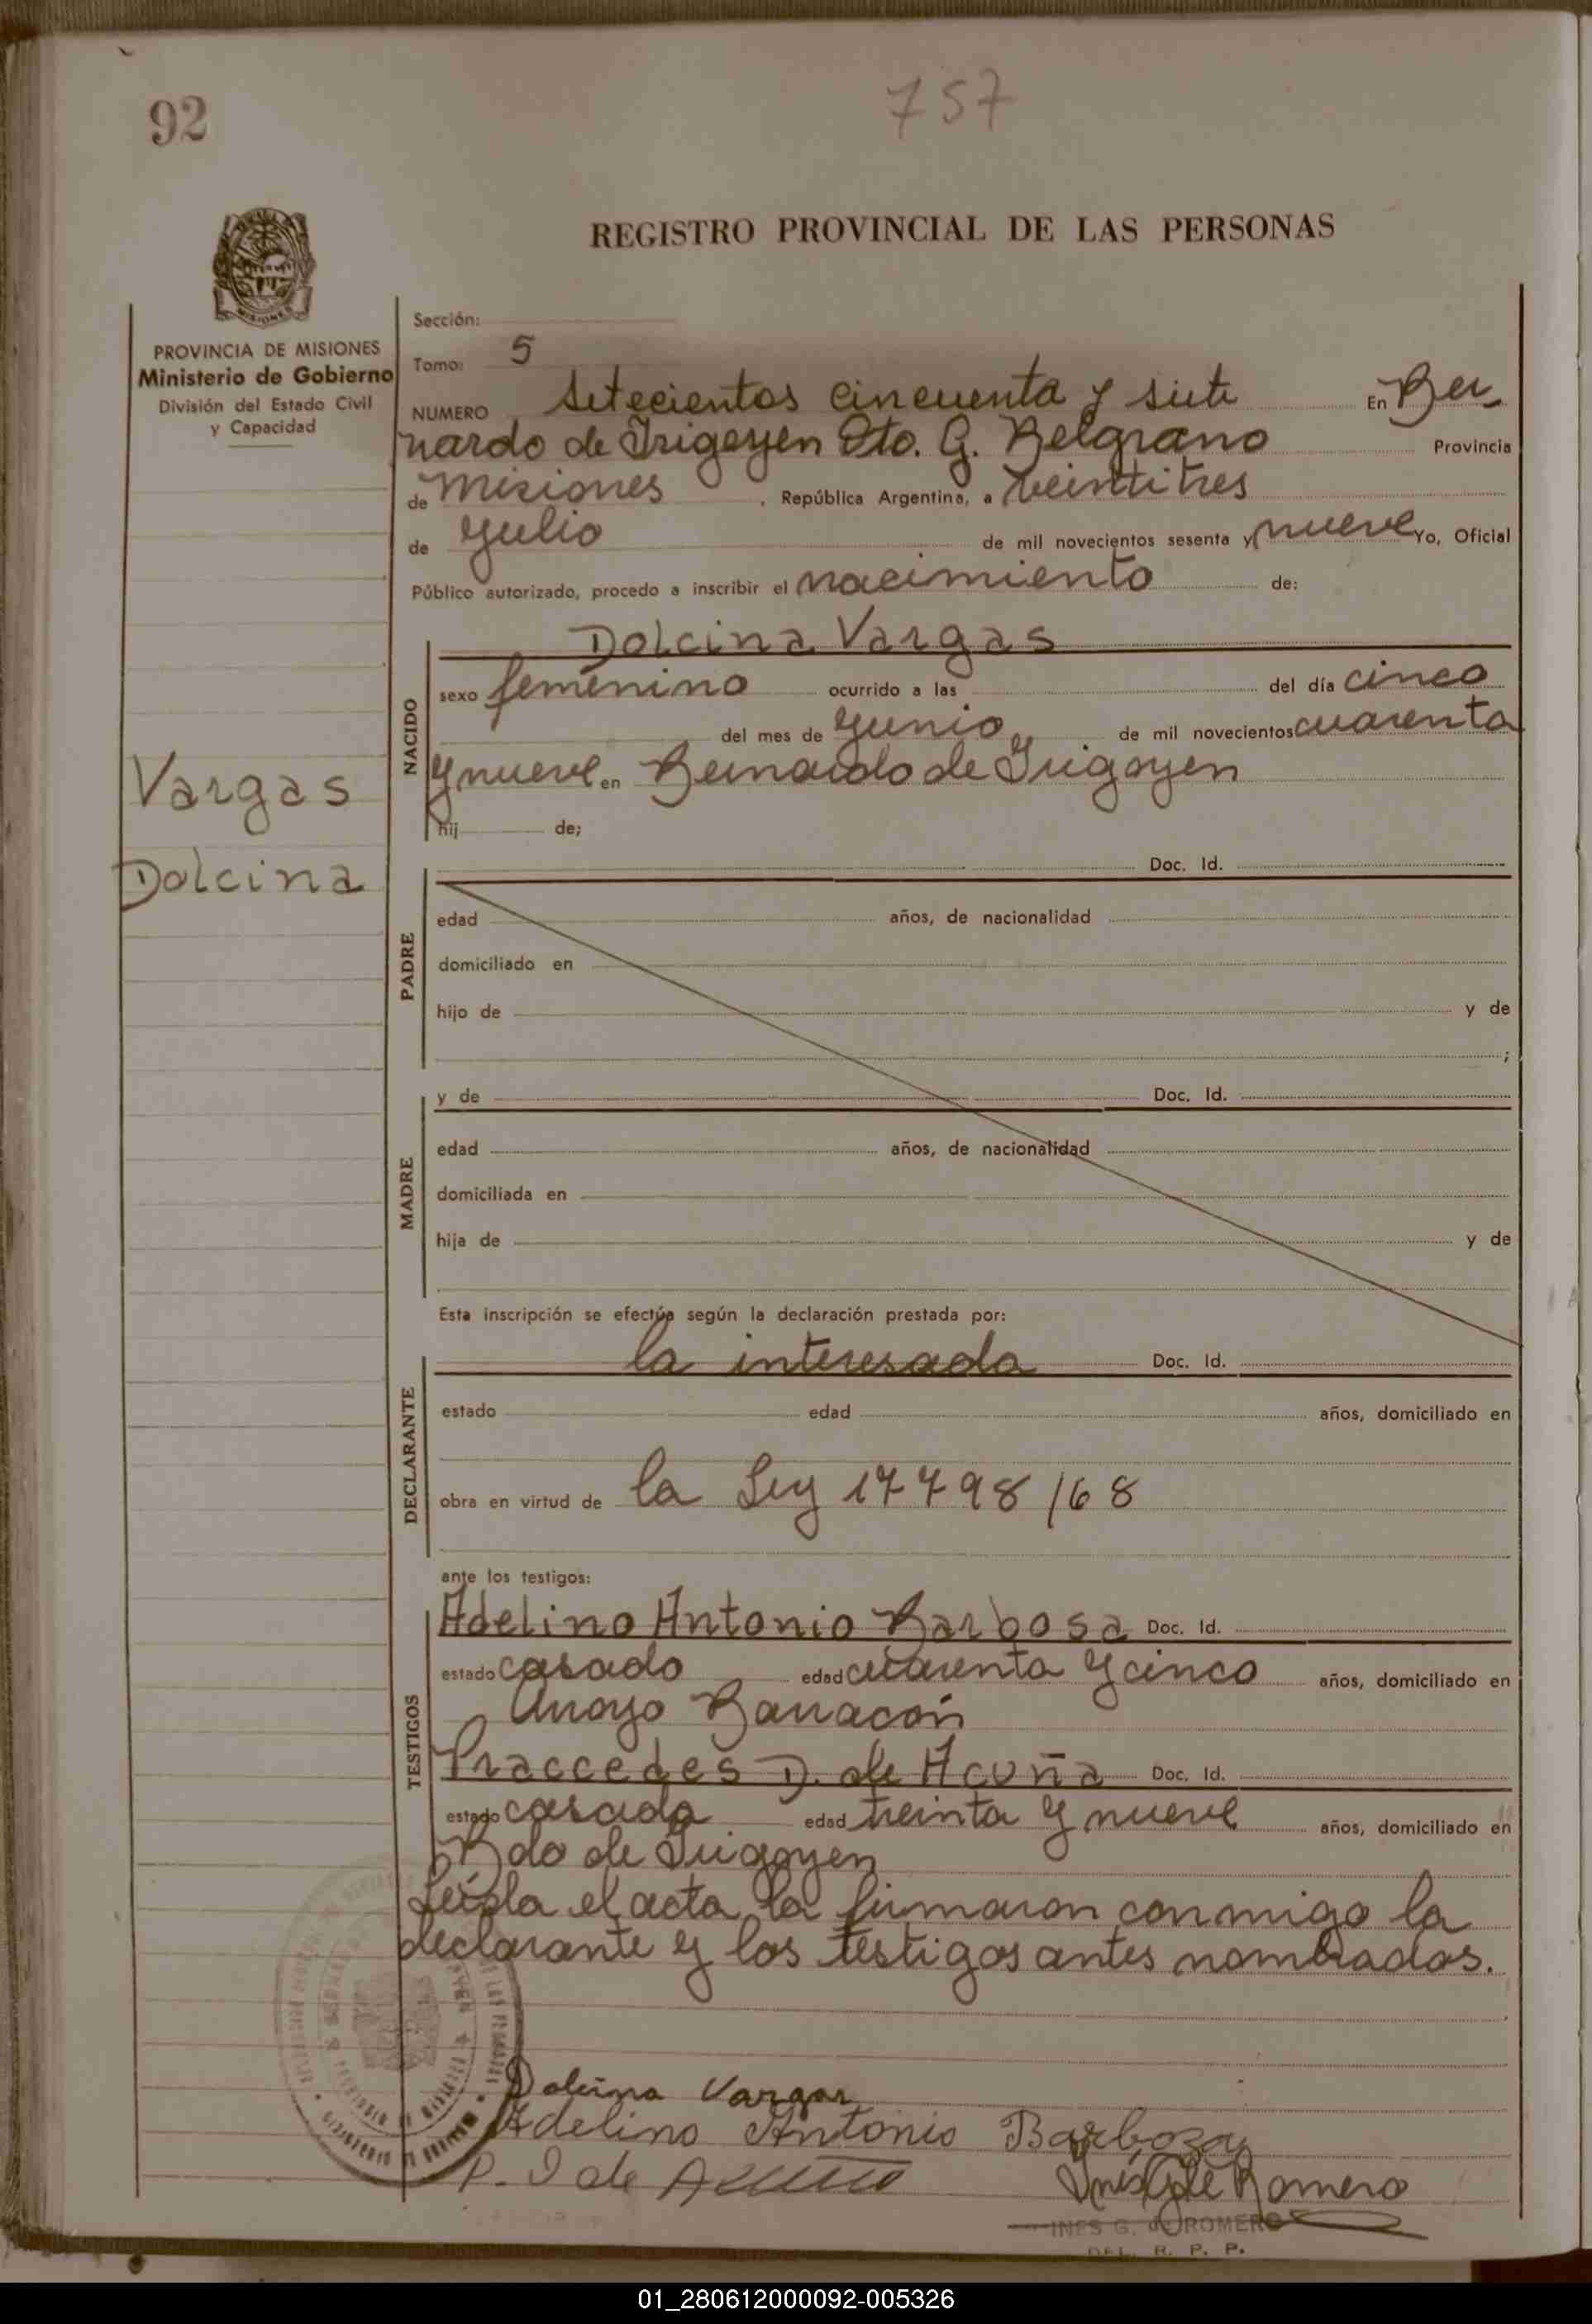 92
757
REGISTRO PROVINCIAL DE LAS PERSONAS
MISIONES
PROVINCIA DE MISIONES
Ministerio de Gobierno
División del Estado Civil
y Capacidad
Sección:
Tomo: 5
NUMERO Setecientos cincuenta y siete En Ber
nardo de Irigoyen Dto. G. Belgrano Provincia
de Misiones, República Argentina, a veintitres
de Julio de mil novecientos sesenta y nueve Yo, Oficial
Público autorizado, procedo a inscribir el nacimiento de:
Dolcina Vargas
NACIDO
sexo femenino ocurrido a las del día cinco
del mes de Junio de mil novecientos cuarenta
y nueve en Bernardo de Irigoyen
hij de;
Vargas
Dolcina
PADRE
Doc. Id.
edad años, de nacionalidad
domiciliado en
hijo de y de
;
MADRE
y de Doc. Id.
edad años, de nacionalidad
domiciliada en
hija de y de
Esta inscripción se efectúa según la declaración prestada por:
DECLARANTE
la interesada Doc. Id.
estado edad años, domiciliado en
obra en virtud de la Ley 17798/68
ante los testigos:
TESTIGOS
Adelino Antonio Barbosa Doc. Id.
estado casado edad cuarenta y cinco años, domiciliado en
Arroyo Barracon
Praccedes D. de Acuña Doc. Id.
estado casada edad treinta y nueve años, domiciliado en
Bdo de Irigoyen
Leída el acta la firmaron conmigo la
declarante y los testigos antes nombrados.
Dolcina Vargas
Adelino Antonio Barboza
P. D de Acuña
Inés G de Romero
INES G. de ROMERO
DEL. R. P. P.
01_280612000092-005326